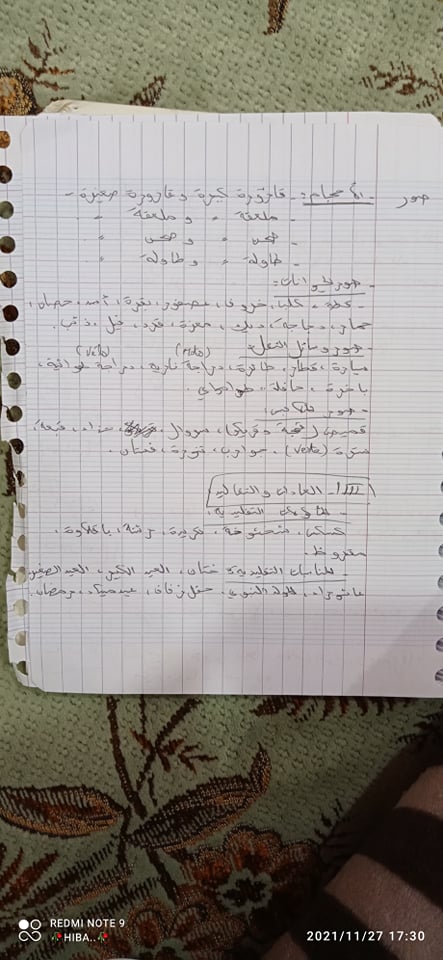 صور - الأحجام: - قارورة كبيرة و قارورة صغيرة -
- ملعقة " و ملعقة " -
- صحن " و صحن " -
- طاولة " و طاولة " -
- صور حيوانات:
- قطة، كلب، خروف، عصفور، بقرة، أسد، حصان،
حمار، دجاجة، ديك، معزة، قرد، فيل، ذئب.
- صور وسائل النقل:
(Moto) (vélo)
سيارة، قطار، طائرة، دراجة نارية، دراجة هوائية،
باخرة، حافلة، طرامواي.
- صور ملابس:
قميص، سروال، حذاء، قبعة،
سترة (veste)، جوارب، تنورة، فستان.
III - العادات والتقاليد
- المأكولات التقليدية:
كسكس، شخشوخة، ثريدة، رشتة، باقلاوة،
مقروط.
- المناسبات التقليدية: ختان، العيد الكبير، العيد الصغير
عاشوراء، المولد النبوي، حفل زفاف، عيد ميلاد، رمضان.
REDMI NOTE 9
HIBA..
2021/11/27 17:30